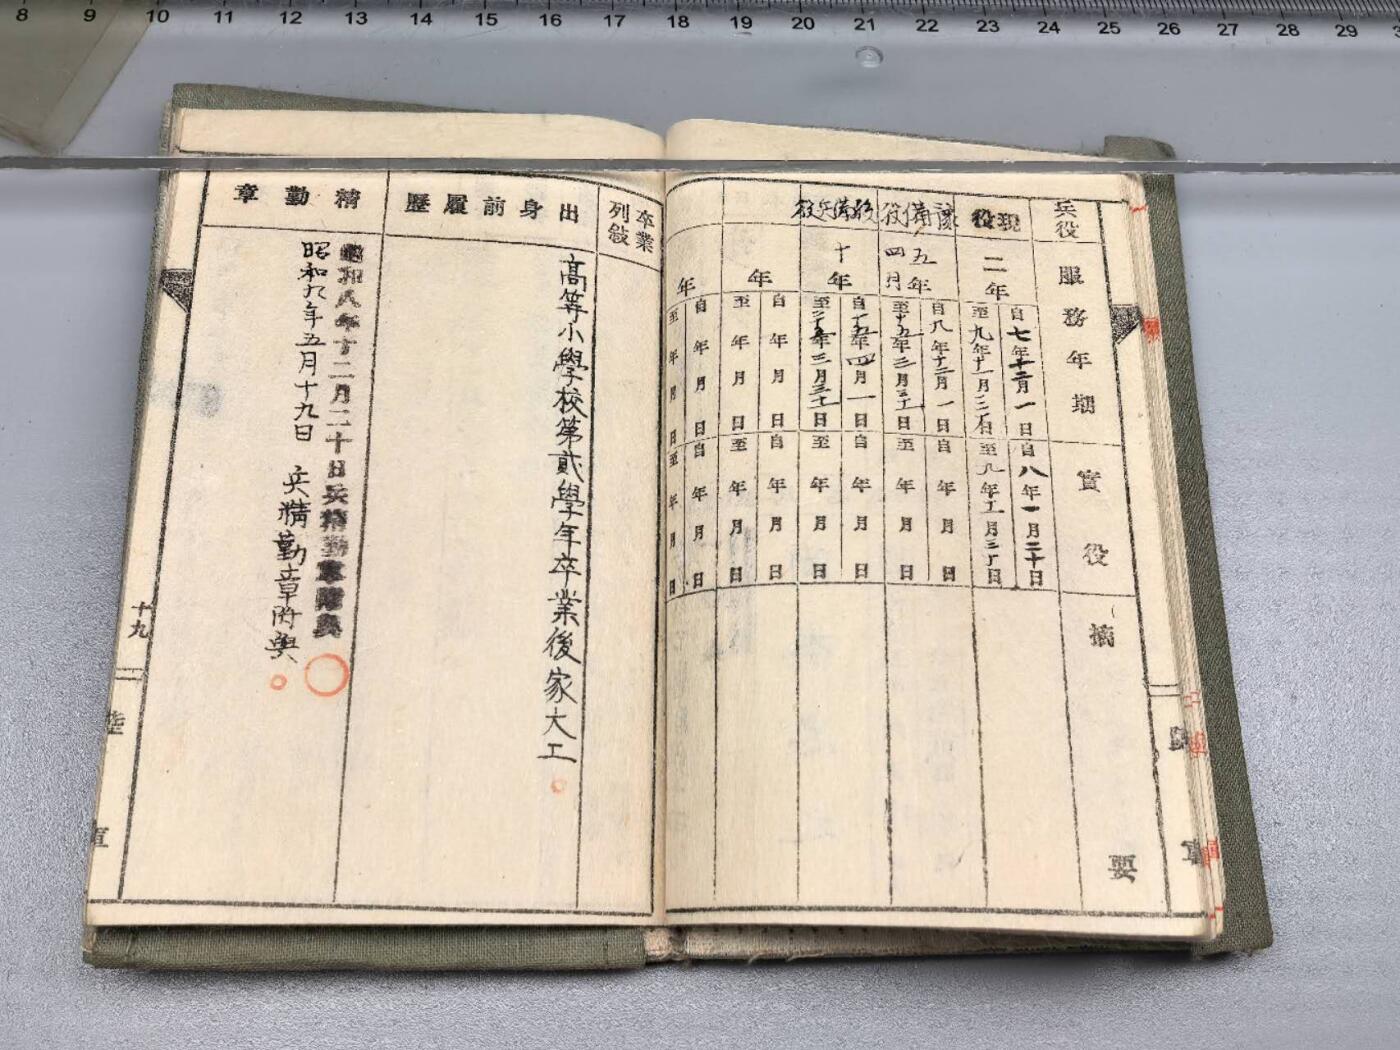 8 9 10 11 12 13 14 15 16 17 18 19 20 21 22 23 24 25 26 27 28 29
兵役
服務年期
實役
摘要
現役
二年
自七年十二月一日
至九年十一月三十日
自八年一月二十日
至九年十一月三十日
豫備役
五年四月
自八年十二月一日
至十五年三月三十一日
自年月日
至年月日
後備兵役
十年
自十五年四月一日
至二十五年三月三十一日
自年月日
至年月日
年
自年月日
至年月日
自年月日
至年月日
年
自年月日
至年月日
自年月日
至年月日
卒業列敍
出身前履歷
高等小學校第貳學年卒業後家大工
精勤章
昭和八年十二月二十日兵精勤章附與
昭和九年五月十九日 兵精勤章附與
十九
陸軍